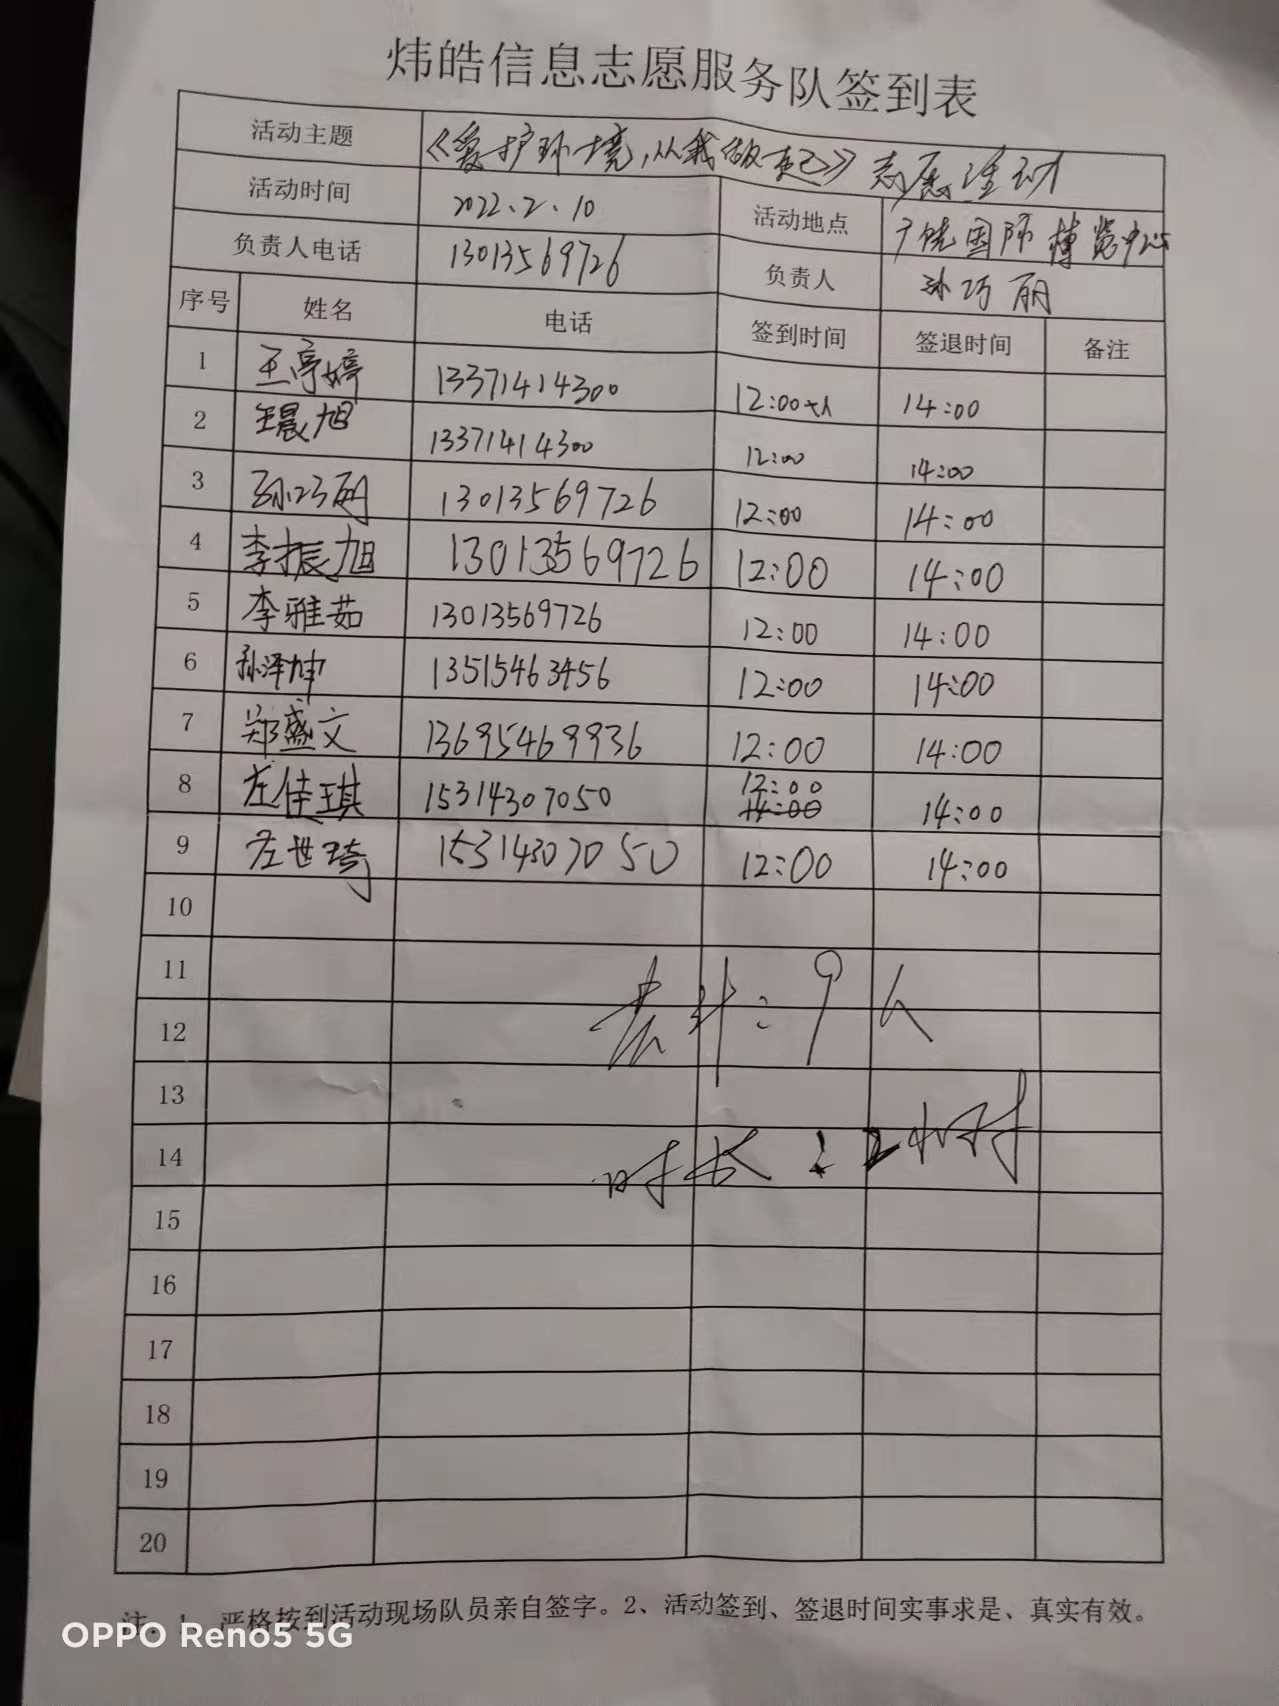 炜皓信息志愿服务队签到表
活动主题 《爱护环境,从我做起》志愿活动
活动时间 2022、2、10 活动地点 广饶国际博览中心
负责人电话 13013569726 负责人 孙巧丽
序号 姓名 电话 签到时间 签退时间 备注
1 王婷婷 13371414300 12:00 14:00
2 王晨旭 13371414300 12:00 14:00
3 孙巧丽 13013569726 12:00 14:00
4 李振旭 13013569726 12:00 14:00
5 李雅茹 13013569726 12:00 14:00
6 孙泽坤 13515463456 12:00 14:00
7 郑盛文 13695469936 12:00 14:00
8 左佳琪 15314307050 12:00 14:00
9 左世琦 15314307050 12:00 14:00
10
11
共计:9人
12
13
14
时长:2小时
15
16
17
18
19
20
注:1、严格按到活动现场队员亲自签字。2、活动签到、签退时间实事求是、真实有效。
OPPO Reno5 5G